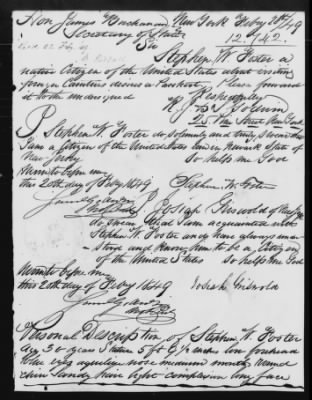 Hon James Buchanan, New York Feby 20th /49
Secretary of State 12.142.
Sir
Stephen W. Foster a
native Citizen of the United States about visiting
foreign Countries desires a Passport. Please forward
it to the undersigned
Respectfully
I Stephen W. Foster do solemnly and truly swear that
I am a citizen of the United States born in Newark State of
New Jersey So help me God
Sworn to before me
this 20th day of Feby 1849 Stephen W. Foster
I Josiah Griswold of New York
do swear that I am acquainted with
Stephen W. Foster and have always under-
stood and know him to be a Citizen
of the United States So help me God
Sworn to before me
this 20th day of Feby 1849 Josiah Griswold
Personal Description of Stephen W. Foster
Age years Stature 5 ft inches low forehead
blue eyes nose medium mouth round
chin sandy hair light complexion long face